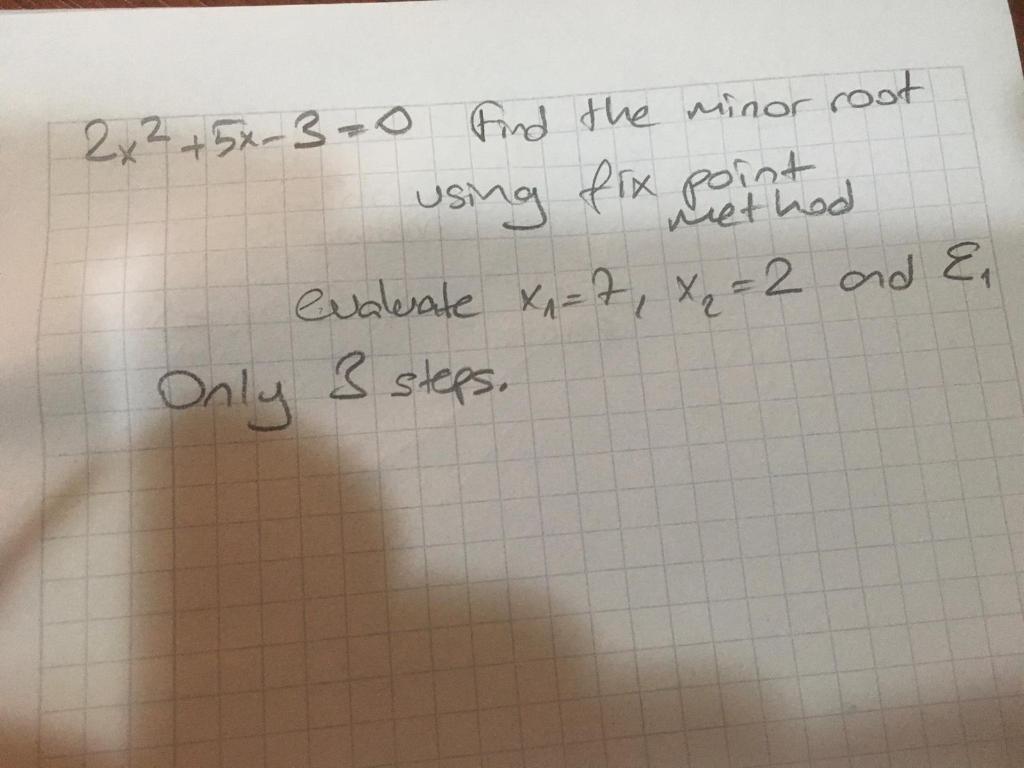 2x² + 5x - 3 = 0 find the minor root
using fix point
method
evaluate x₁ = 7, x₂ = 2 and Ɛ₁
Only 3 steps.